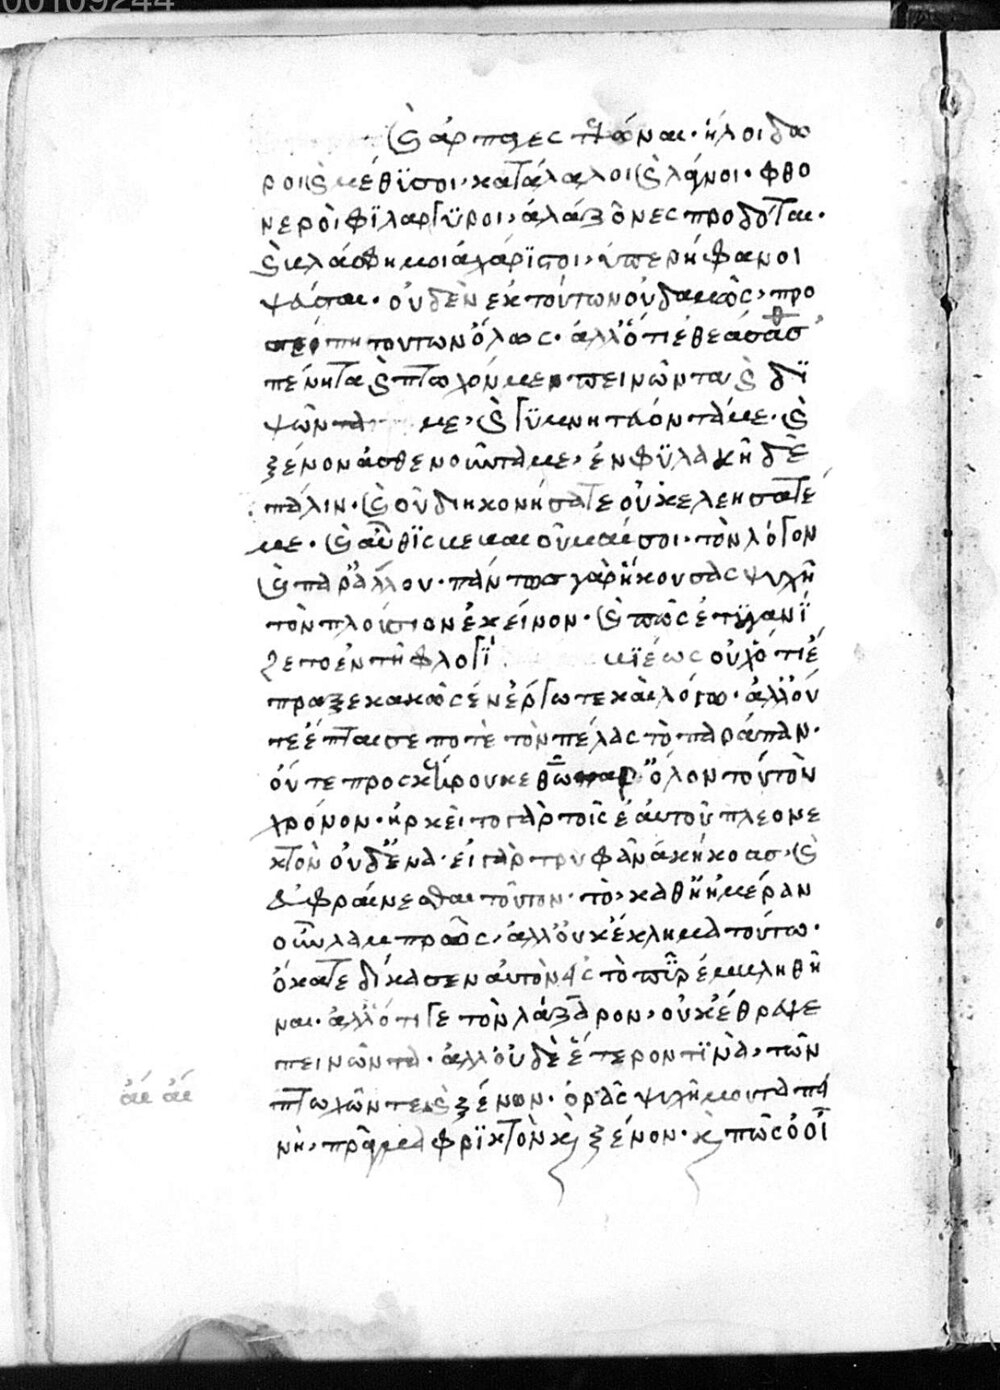 00109244
καὶ ἅρπαγες πλάναι· ἢ λοιδω
ροι καὶ μέθϋσοι· κατάλαλοι καὶ λάγνοι· φθο
νεροὶ φϊλαργϋροι, ἀλάζὸνες προδόται·
καὶ βλάσφημοι ἀχάρϊστοι, ὑπερήφανοι
ψεύσται· οὐδὲν ἐκ τούτων οὐδαμῶς, προ
τούτων ὅλως· ἀλλ' ὅτι ἐθεάσασθ'
πένητα καὶ πτωχόν με· πεινῶντα καὶ δϊ
ψῶντα με, καὶ γϋμνητεύοντά με· καὶ
ξένον ἀσθενοῦντά με, ἐν φϋλακῆ δὲ
πάλιν· καὶ οὐ διηκονήσατε οὐκ ἐλεήσατέ
με· καὶ αὖθϊς μέμασοι· τὸν λόγον
καὶ παρ' ἄλλου· πάντως γὰρ ἤκουσας ψυχὴ
τὸν πλούσιον ἐκεῖνον· καὶ πῶς ἐτηγανί
ζετο ἐν τῆ φλογϊ οὐχ' ὅτι ἔ
πραξε κακῶς ἐν ἔργω τε καὶ λόγω· ἀλλ' οὔ
τε ἔπταισε ποτὲ τὸν πέλας τὸ παράπαν·
οὔτε προσκεθῶ ὅλον τοῦτον
χρόνον· ἠρκεῖτο γὰρ τοῖς ἑαυτοῦ πλεονε
κτὸν οὐδένα· εἰ γὰρ τρυφᾶν ἀκήκοας, καὶ
εὐφραίνεσθαι τοῦτον· τὸ, καθ' ἡμέραν
οὖν λαμπρῶς, ἀλλ' οὐκ ἔκλημα τούτω·
ὃ κατεδίκασεν αὐτὸν εἰς τὸ πῦρ ἐμβληθῆ
ναι· ἀλλ' ὅτι γε τὸν λάζαρον, οὐκ ἔθρεψε
πεινῶντα· ἀλλ' οὐδὲ ἕτερον τϊνὰ, τῶν
πτωχῶν τε καὶ ξένων· ὁρᾶς ψυχή μου ταπει
νὴ, πρᾶγμα φρϊκτὸν καὶ ξένον· καὶ πῶς ὁ οἶ